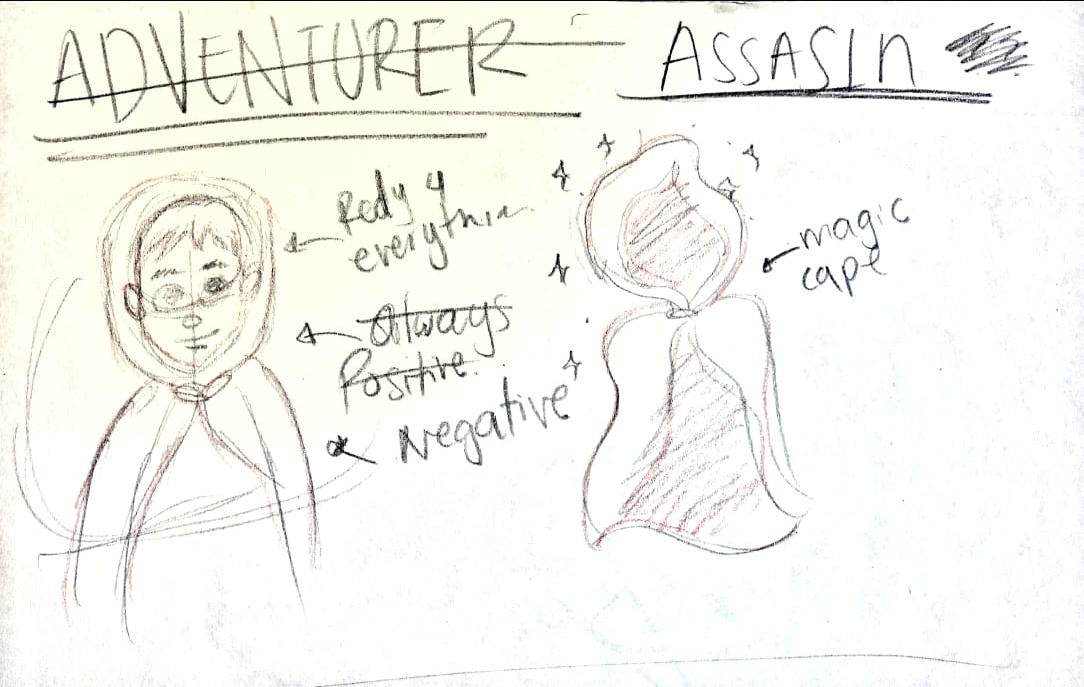 ADVENTURER
ASSASIn
Redy 4
everythin
Always
Positive.
Negative
magic
cape